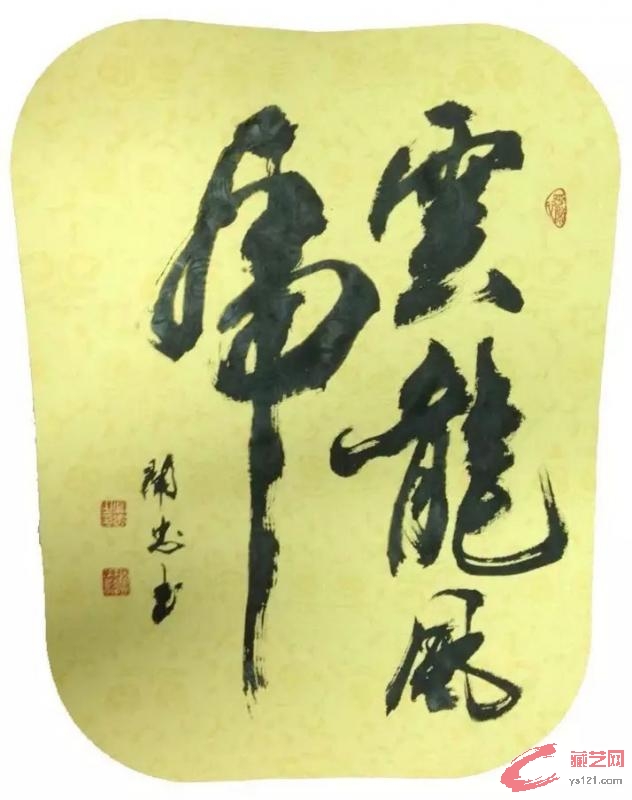 雲龍風
虎
開忠书
藏艺网
ys121.com